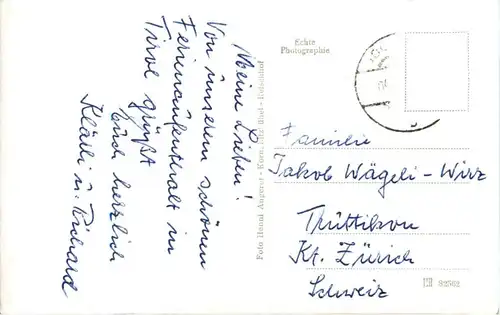 Meine Lieben!
Von unserem schönen
Ferienaufenthalt in
Tirol grüßt
Euch herzlich
Klärli u. Richard
Echte
Photographie
Foto Hanni
Familie
Jakob Wägeli-Wirz
Trüttikon
Kt. Zürich
Schweiz
82562